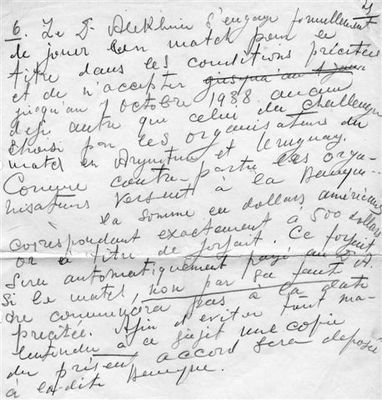 6. Le Dr Alekhine s'engage formellement
de jouer son match pour le
titre dans les conditions précitées
et de n'accepter
jusqu'au 1 octobre 1938 aucun
defi autre que celui du challenger
choisi par les organisateurs du
match en Argentine et Uruguay.
Comme contre-partie les orga-
nisateurs versent à la Banque
la somme en dollars américains
correspondant exactement à 500 dollars
or à titre de forfait. Ce forfait
sera automatiquement payé au Dr A.
Si le match, non par sa faute
ne commencera pas à la date
precitée. Afin d'eviter tout ma-
lentendu à ce sujet une copie
du présent accord sera deposée
à la dite Banque.